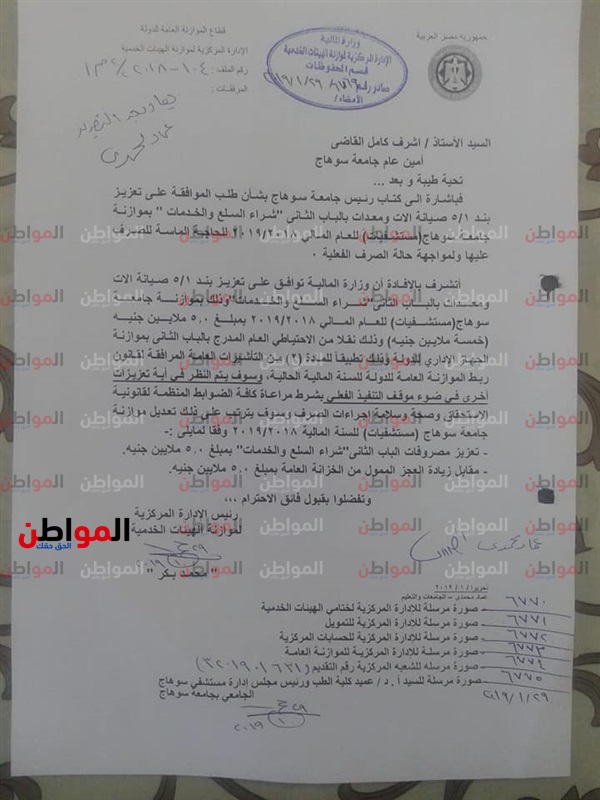 جمهوريه مصر العربية
وزارة المالية
الإدارة المركزية لموازنة الهيئات الخدمية
قسم المحفوظات
صادر رقم
الأمضاء /
قطاع الموازنة العامة للدولة
الإدارة المركزية لموازنة الهيئات الخدمية
رقم الملف :
المرفقات :
السيد الأستاذ / اشرف كامل القاضى
أمين عام جامعة سوهاج
تحية طيبة و بعد ...
فباشارة الى كتاب رئيس جامعة سوهاج بشأن طلب الموافقة على تعزيز
بند ٥/١ صيانة الات ومعدات بالباب الثانى "شراء السلع والخدمات " بموازنة
جامعة سوهاج(مستشفيات) للعام المالي ٢٠١٩/٢٠١٨ للحاجة الماسة للصرف
عليها ولمواجهة حالة الصرف الفعلية ٠
أتشرف بالإفادة أن وزارة المالية توافق على تعزيز بند ٥/١ صيانة الات
ومعدات بالباب الثانى "شراء السلع والخدمات" وذلك بموازنة جامعة
سوهاج(مستشفيات) للعام المالي ٢٠١٩/٢٠١٨ بمبلغ ٥,٠ ملايين جنيه
(خمسة ملايين جنيه) وذلك نقلا من الاحتياطي العام المدرج بالباب الثانى بموازنة
الجهاز الإداري للدولة وذلك تطبيقا للمادة (٢) من التأشيرات العامة المرافقة لقانون
ربط الموازنة العامة للدولة للسنة المالية الحالية، وسوف يتم النظر في أية تعزيزات
أخرى في ضوء موقف التنفيذ الفعلي بشرط مراعاة كافة الضوابط المنظمة لقانونية
الاستحقاق وصحة وسلامة إجراءات الصرف وسوف يترتب على ذلك تعديل موازنة
جامعة سوهاج (مستشفيات) للسنة المالية ٢٠١٩/٢٠١٨ وفقا لمايلى :-
- تعزيز مصروفات الباب الثانى"شراء السلع والخدمات" بمبلغ ٥,٠ ملايين جنيه.
- مقابل زيادة العجز الممول من الخزانة العامة بمبلغ ٥,٠ ملايين جنيه.
وتفضلوا بقبول فائق الاحترام ،،،
رئيس الإدارة المركزية
لموازنة الهيئات الخدمية
" محمد بكر "
المواطن
الحق حقك
عماد محمدى – الجامعات والتعليم
٦٧٧٠ - صورة مرسلة للإدارة المركزية لختامي الهيئات الخدمية
٦٧٧١ - صورة مرسلة للإدارة المركزية للتمويل
٦٧٧٢ - صورة مرسلة للإدارة المركزية للحسابات المركزية
٦٧٧٣ - صورة مرسلة للإدارة المركزية للموازنة العامة
٦٧٧٤ - صورة مرسلة للشعبه المركزية رقم التقديم
٦٧٧٥ - صورة مرسلة للسيد أ . د / عميد كلية الطب ورئيس مجلس إدارة مستشفي سوهاج
الجامعي بجامعه سوهاج